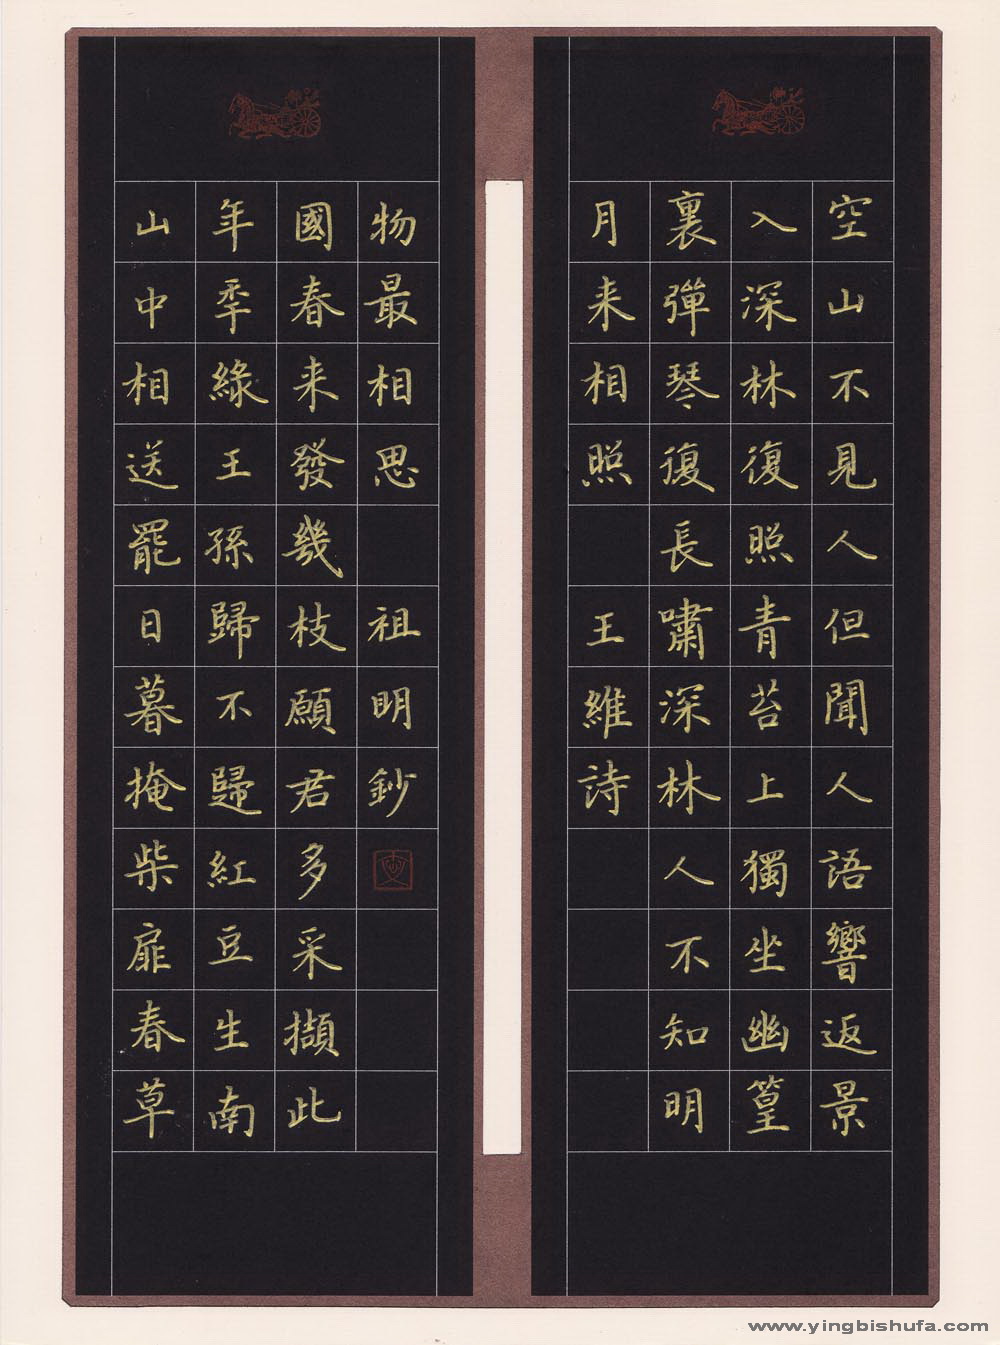 空山不見人但聞人語響返景
入深林復照青苔上獨坐幽篁
裏彈琴復長嘯深林人不知明
月来相照 王維詩
山中相送罷日暮掩柴扉春草
年秊綠王孫歸不歸紅豆生南
國春来發幾枝願君多采擷此
物最相思 祖明鈔
www.yingbishufa.com